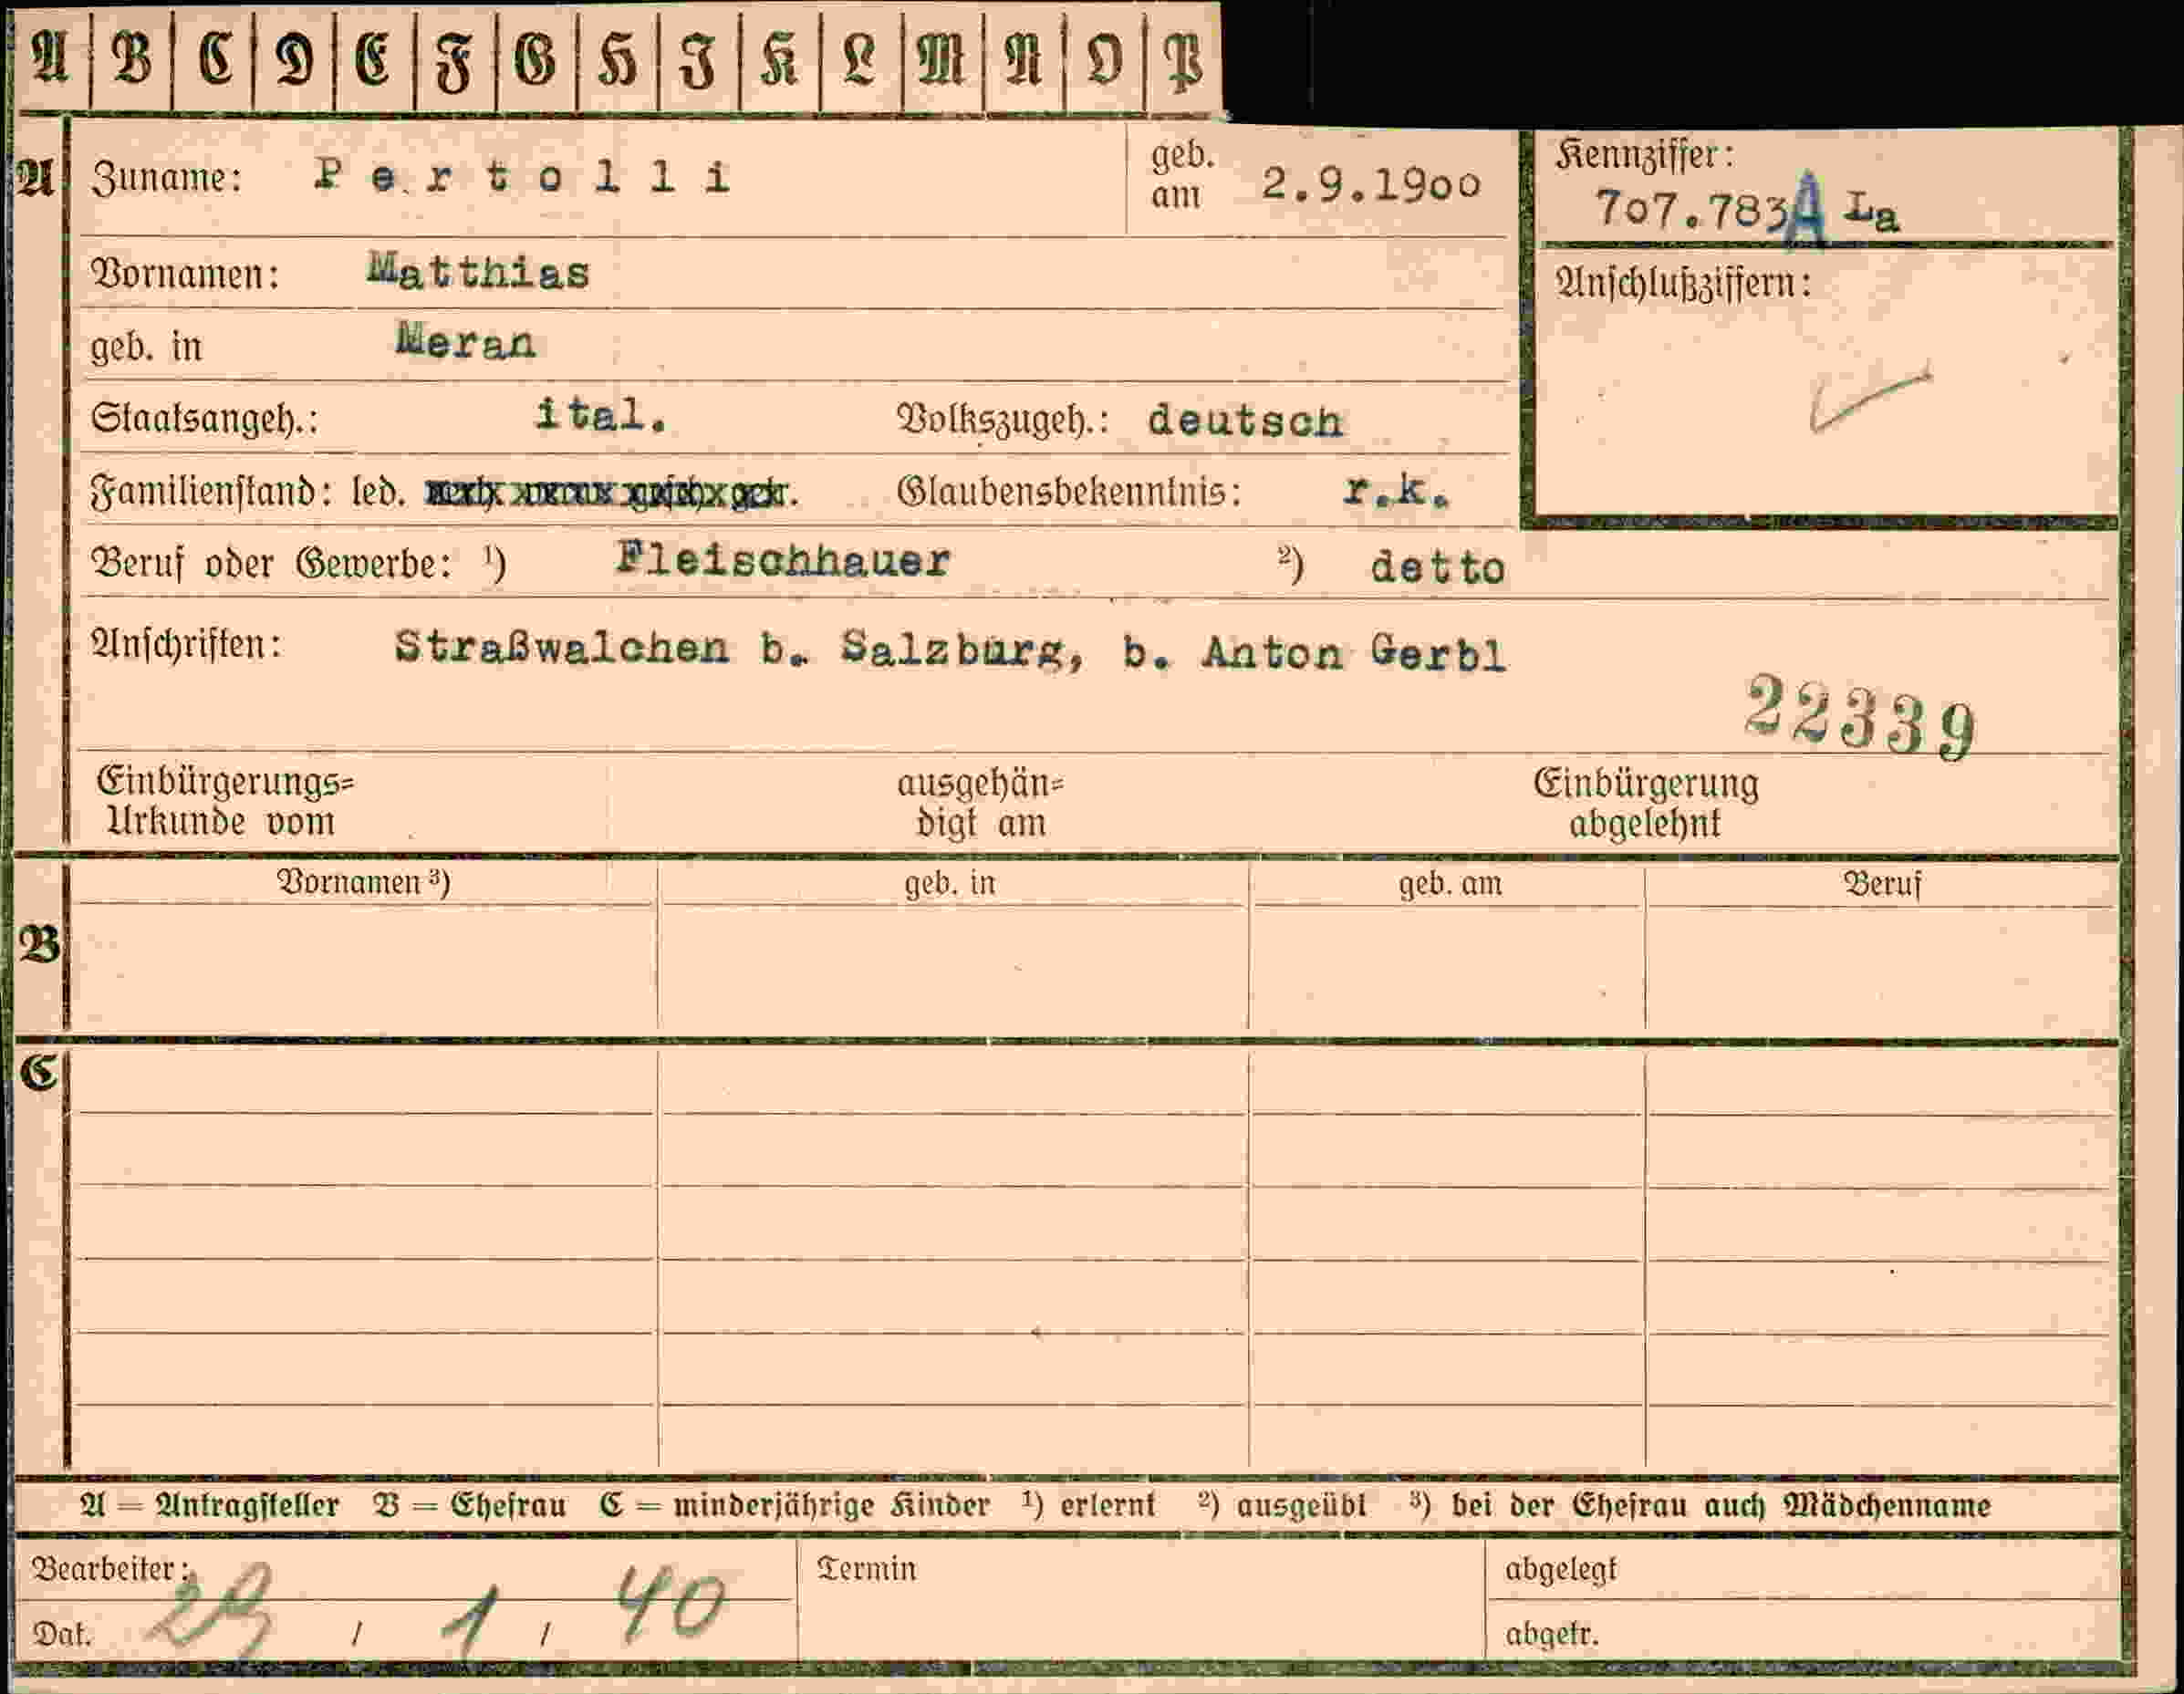 A B C D E F G H I K L M N O P
A Zuname: Pertolli geb. am 2.9.1900 Kennziffer: 707.783 A La
Vornamen: Matthias Anschlußziffern:
geb. in Meran
Staatsangeh.: ital. Volkszugeh.: deutsch
Familienstand: led. Glaubensbekenntnis: r.k.
Beruf oder Gewerbe: ¹) Fleischhauer ²) detto
Anschriften: Straßwalchen b. Salzburg, b. Anton Gerbl
22339
Einbürgerungs= ausgehän= Einbürgerung
Urkunde vom digt am abgelehnt
Vornamen ³) geb. in geb. am Beruf
B
C
A = Antragsteller B = Ehefrau C = minderjährige Kinder ¹) erlernt ²) ausgeübt ³) bei der Ehefrau auch Mädchenname
Bearbeiter: Termin abgelegt
Dat. 29 / 1 / 40 abgetr.